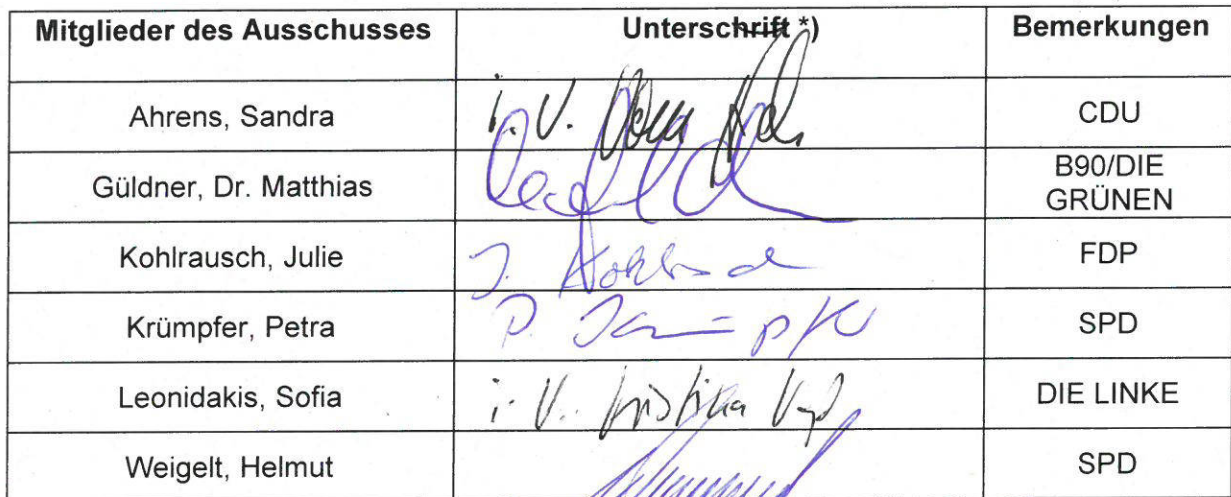 Mitglieder des Ausschusses Unterschrift *) Bemerkungen
Ahrens, Sandra i. V. CDU
Güldner, Dr. Matthias B90/DIE
GRÜNEN
Kohlrausch, Julie J. Kohlrausch FDP
Krümpfer, Petra P. Krümpfer SPD
Leonidakis, Sofia i. V. Kristina Vogt DIE LINKE
Weigelt, Helmut SPD